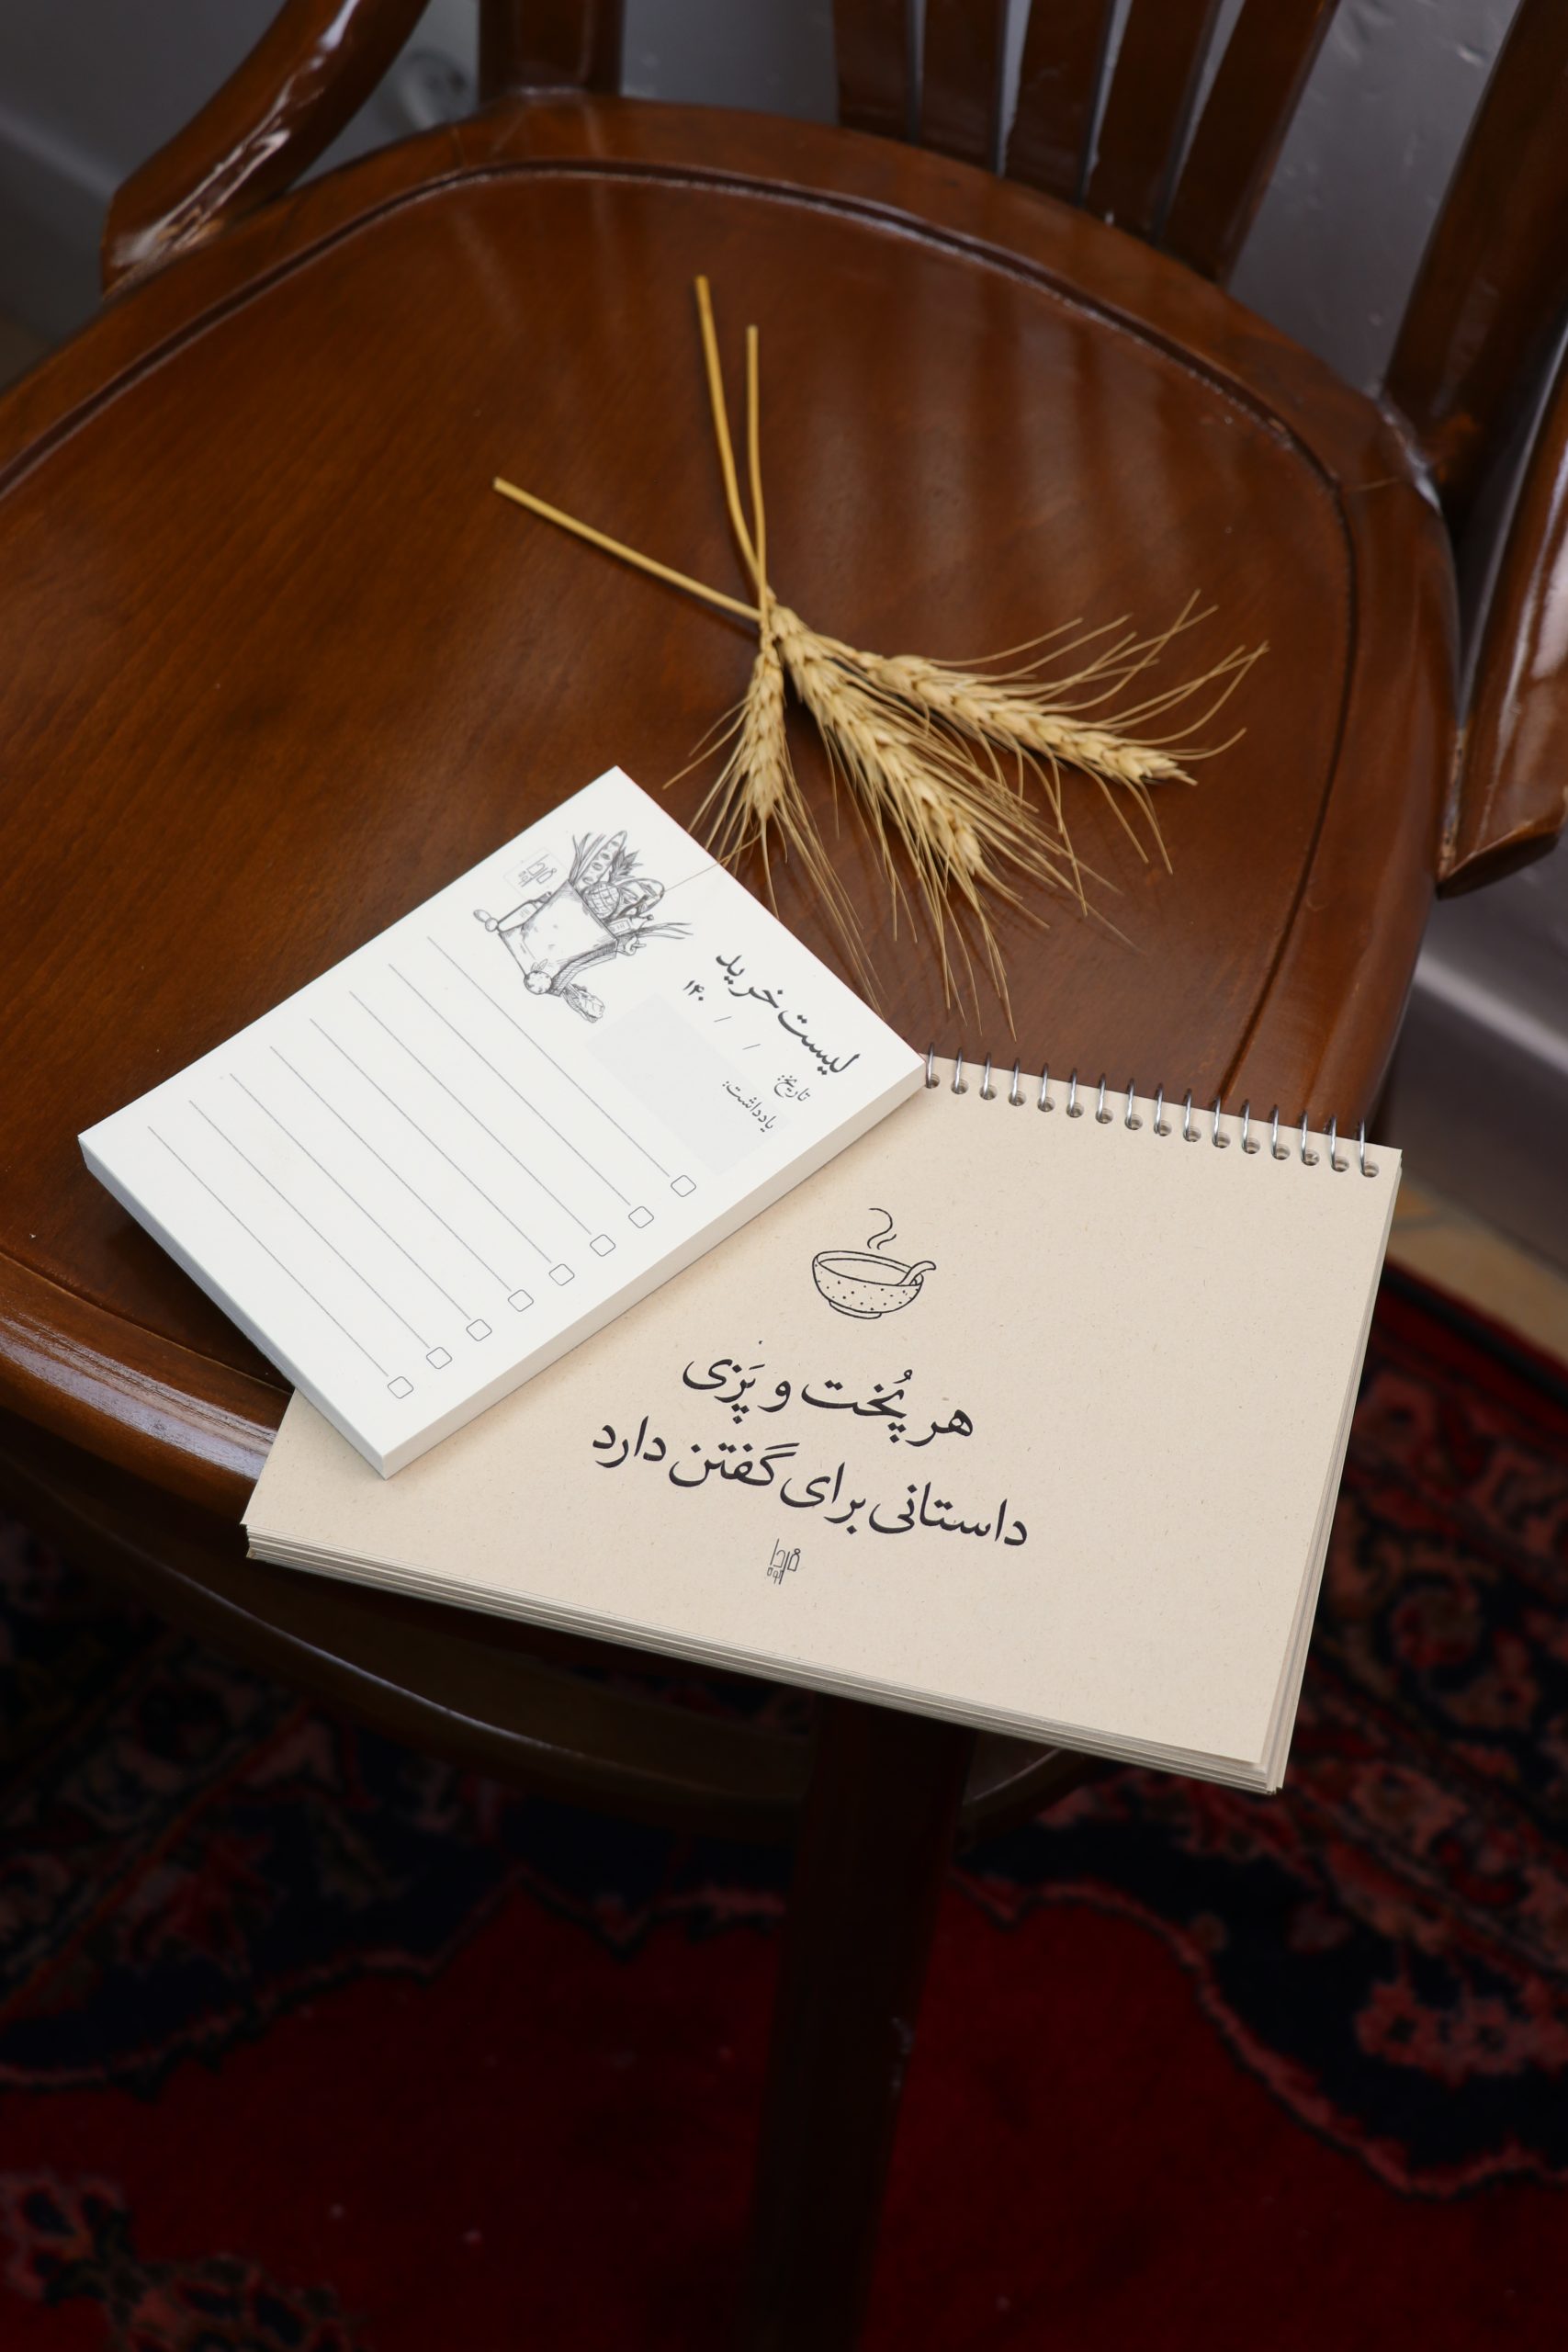 لیست خرید
تاریخ: / / ۱۴۰
یادداشت:
هر پُخت و پَزی
داستانی برای گفتن دارد
فردا